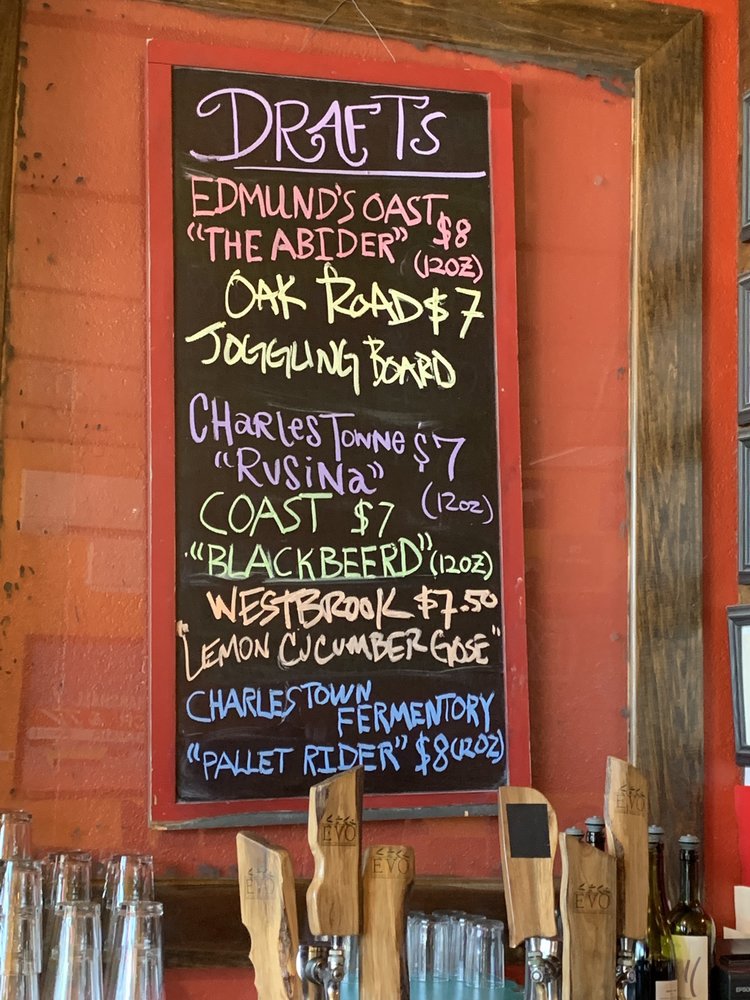 DRAFTs
EDMUND'S OAST $8
"THE ABIDER" (12OZ)
OAK ROAD $7
JOGGLING BOARD
CHarlesTonne $7
"RUSiNa" (12oz)
COAST $7
"BLACKBEERD" (12OZ)
WESTBROOK $7.50
"LEMON CUCUMBER GOSE"
CHARLESTOWN
FERMENTORY
"PALLET RIDER" $8 (12OZ)
EVO
EVO
EVO
EVO
EVO
EPSON